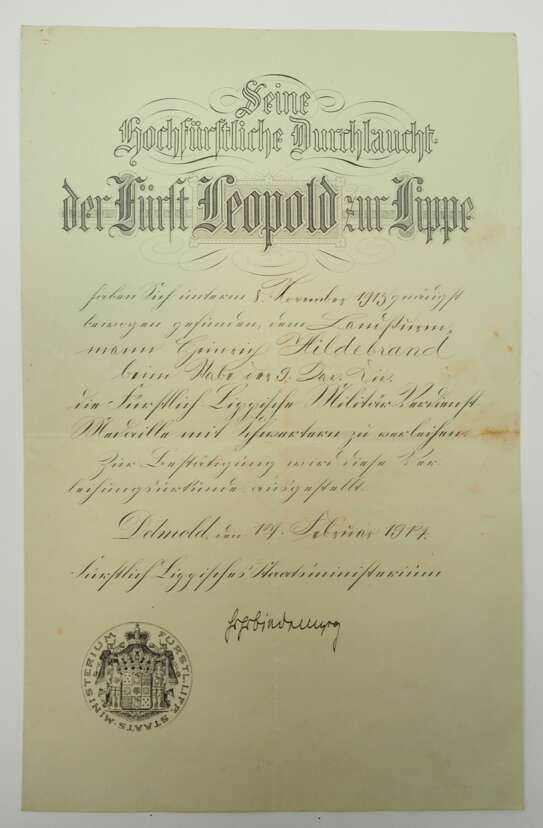 Seine
Hochfürstliche Durchlaucht
der Fürst Leopold zur Lippe
haben Sich unterm 8. November 1915 gnädigst
bewogen gefunden, dem Landsturm-
mann Heinrich Hildebrand
beim Stabe der 9. Div.
die Fürstlich Lippische Militär-Verdienst
Medaille mit Schwertern zu verleihen.
Zur Bestätigung wird diese Ver
leihungsurkunde ausgestellt.
Detmold, den 14. Februar 1917.
Fürstlich Lippisches Staatsministerium
FÜRSTL. LIPP. STAATS-MINISTERIUM